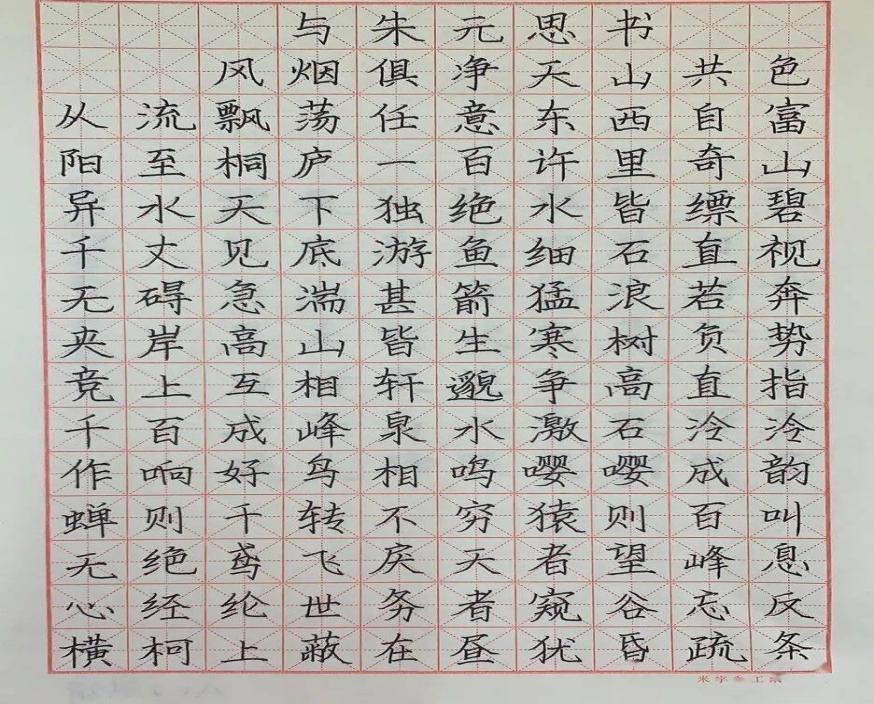 与朱元思书
风烟俱净天山共色
从流飘荡任意东西自富
阳至桐庐一百许里奇山
异水天下独绝水皆缥碧
千丈见底游鱼细石直视
无碍急湍甚箭猛浪若奔
夹岸高山皆生寒树负势
竞上互相轩邈争高直指
千百成峰泉水激石泠泠
作响好鸟相鸣嘤嘤成韵
蝉则千转不穷猿则百叫
无绝鸢飞戾天者望峰息
心经纶世务者窥谷忘反
横柯上蔽在昼犹昏疏条
米字